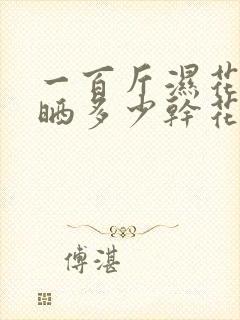 一百斤濕花
晒多少幹花
傅湛